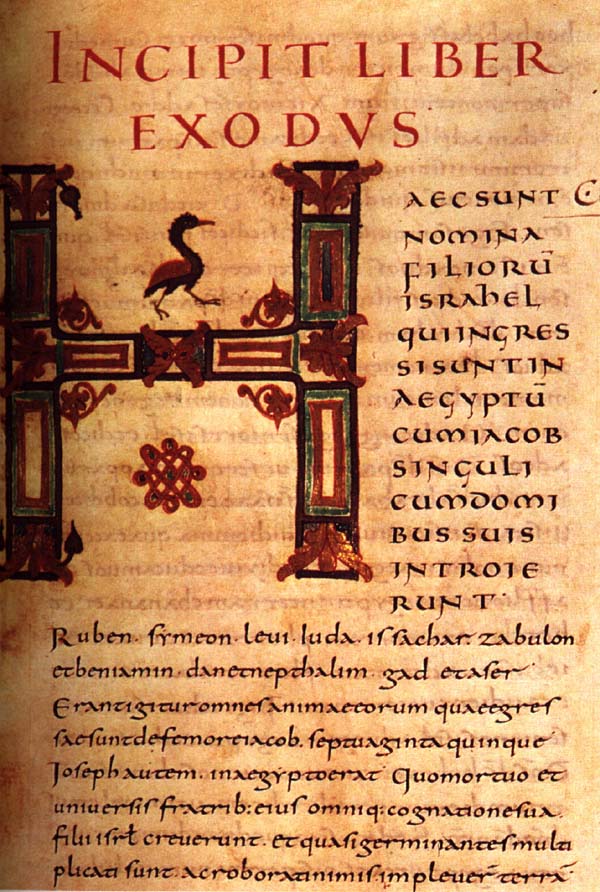 INCIPIT LIBER
EXODVS
HAEC SUNT
NOMINA
FILIORŪ
ISRAhEL
QUIINGRES
SISUNTIN
AEGYPTŪ
CUMIACOB
SINGULI
CUMDOMI
BUS SUIS
INTROIE
RUNT·
Ruben· symeon· levi· iuda· issachar· zabulon
etbeniamin· danetnepthalim· gad etaser
Erantigituromnesanimaeeorum quaeegres
saesuntdefemoreiacob· septuagintaquinque
Ioseph autem· inaegyptoerat Quomortuo et
universis fratrib: eius omniq: cognationesua·
filii isrł creverunt· etquasigerminantesmulti
plicati sunt· acroboratinimis impleuer̄ terrā